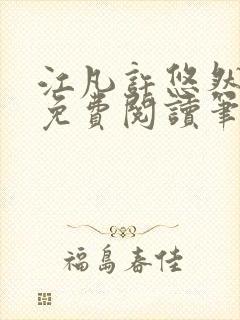 江凡許悠然
免費閱讀筆
福島春佳